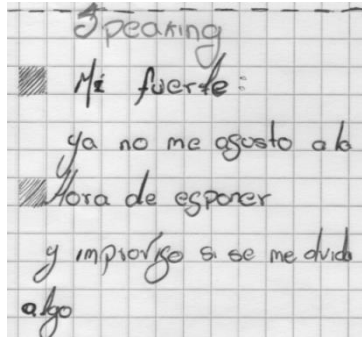 Speaking
Mi fuerte:
ya no me agusto a la
Hora de esponer
y improviso si se me olvida
algo